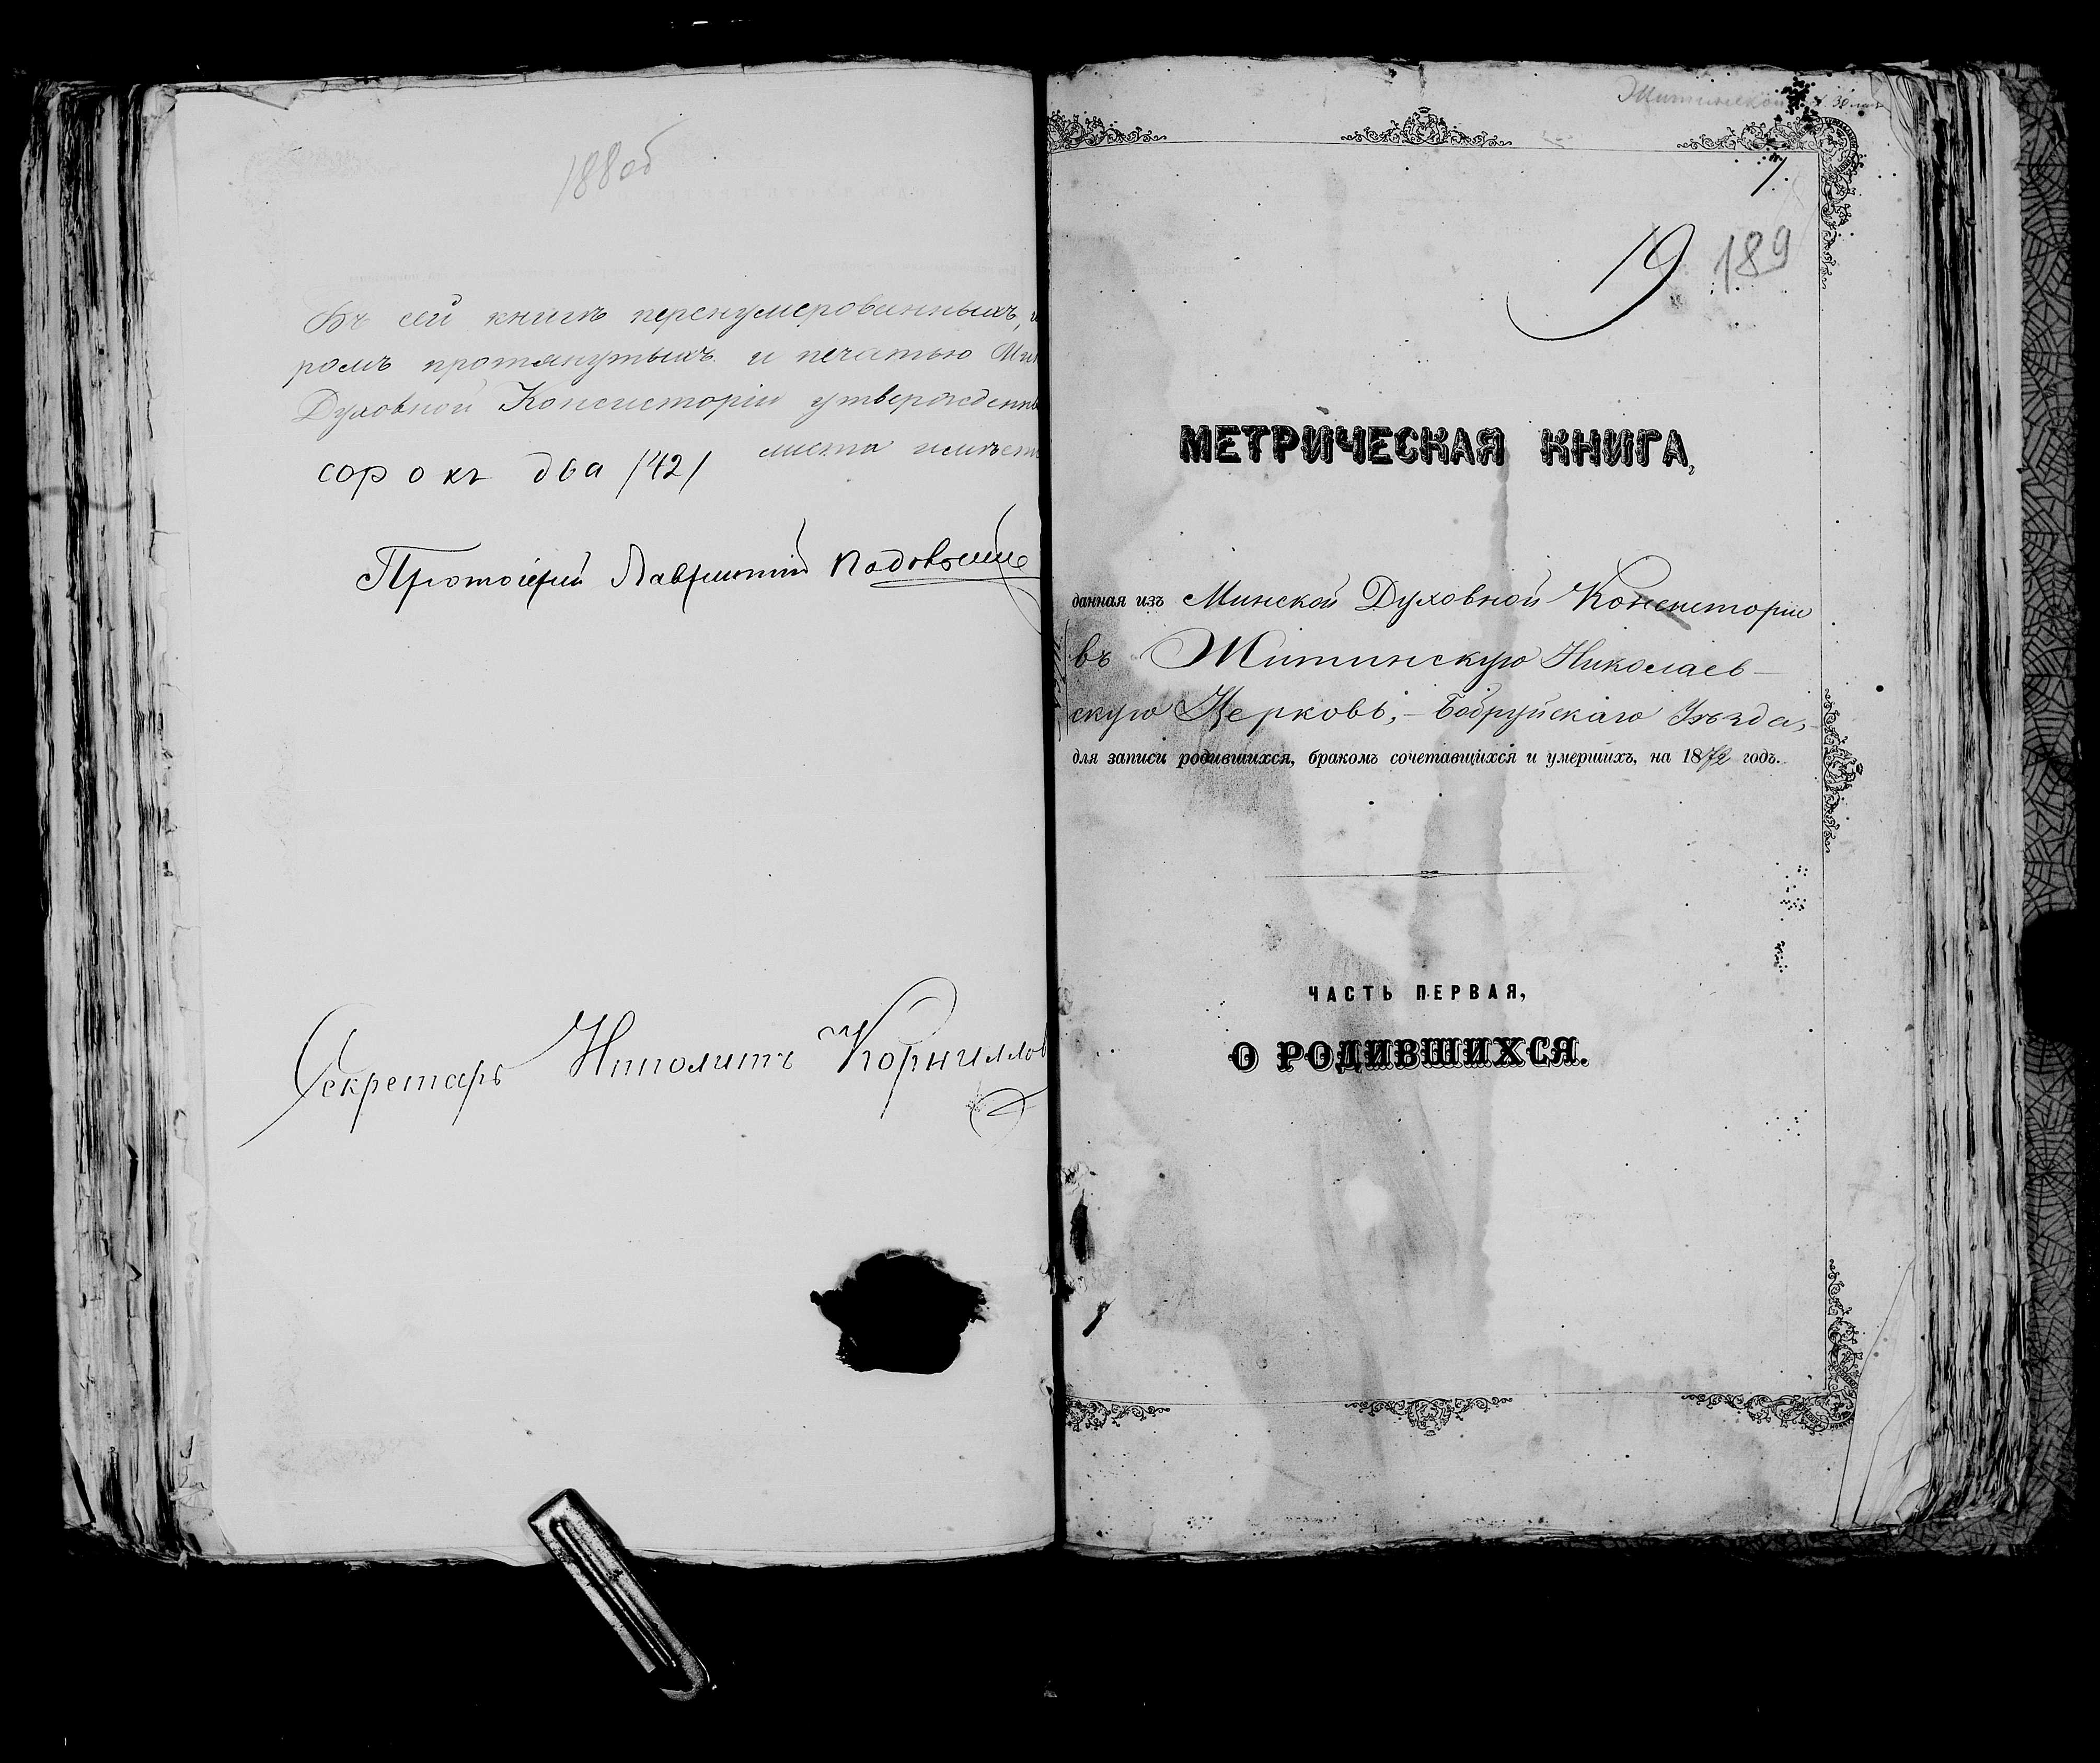 188об
Въ сей книгѣ перенумерованныхъ,
ромъ протянутыхъ и печатью Мин
Духовной Консисторіи утвержденны
листа имѣет
сорокъ два /42/
Протоіерей Лаврентій
Секретарь Иполитъ Корнилов
19 189
МЕТРИЧЕСКАЯ КНИГА,
данная изъ Минской Духовной Консисторіи
въ Житинскую Николаев-
скую Церковь, - Бобруйскаго Уѣзда,
для записи родившихся, бракомъ сочетавщихся и умершихъ, на 1872 годъ.
ЧАСТЬ ПЕРВАЯ,
О РОДИВШИХСЯ.